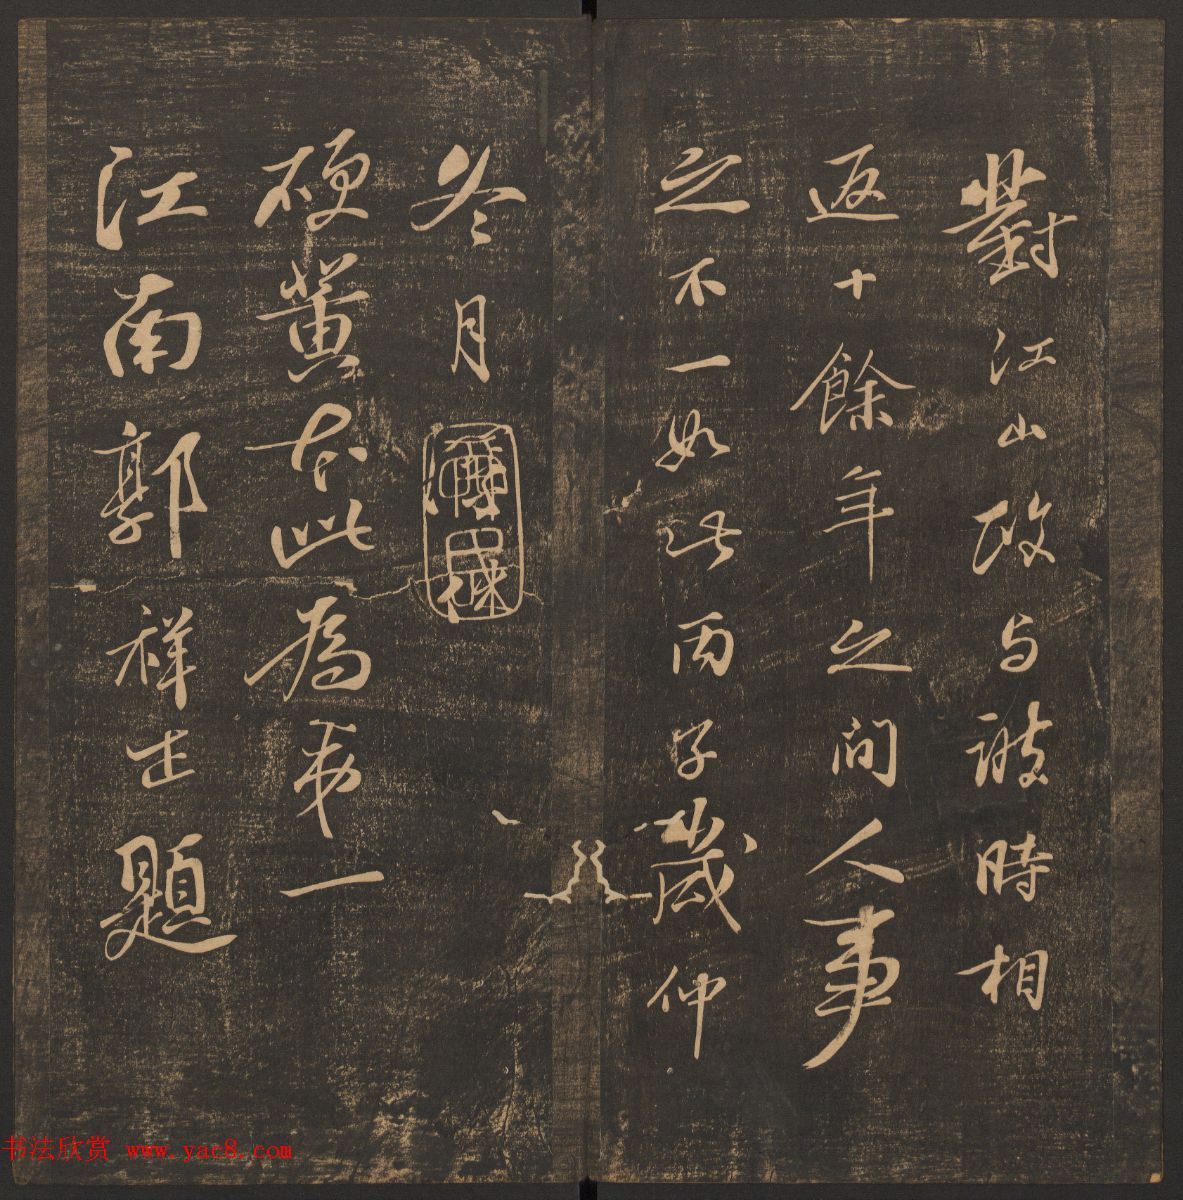 對江山改与諺時相
返十餘年之間人事
之不一如此丙子歲仲
冬月
硬黄本此為第一
江南郭祥士題
书法欣赏 www.yac8.com